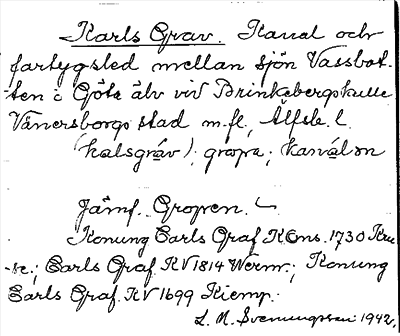 Karls Grav. Kanal och
fartygsled mellan sjön Vassbot-
ten i Göta älv vid Brinkebergskulle
Vänersborgs stad m.fl., Älfsb. l.
(kalsgráv); gropa; kanálen
Jämf. Gropen.
Konung Carls Graf KOns. 1730 Kru
-se; Carls Graf. KV 1814 Werm.; Konung
Carls Graf. KV 1699 Kiemp.
L. M. Svenungsson 1942.